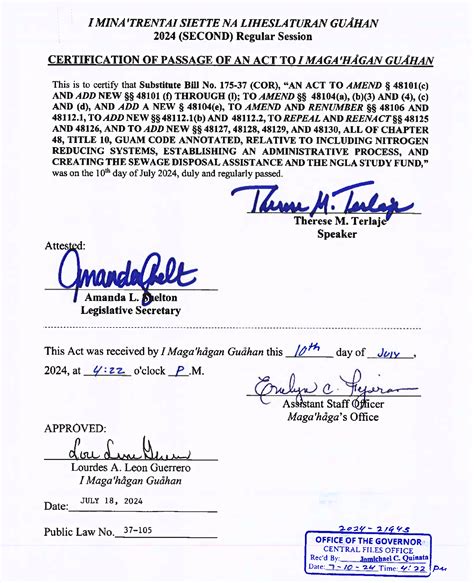 I MINA'TRENTAI SIETTE NA LIHESLATURAN GUÅHAN
2024 (SECOND) Regular Session
CERTIFICATION OF PASSAGE OF AN ACT TO I MAGA'HÅGAN GUÅHAN
This is to certify that Substitute Bill No. 175-37 (COR), "AN ACT TO AMEND § 48101(c)
AND ADD NEW §§ 48101 (f) THROUGH (l); TO AMEND §§ 48104(a), (b)(3) AND (4), (c)
AND (d), AND ADD A NEW § 48104(e), TO AMEND AND RENUMBER §§ 48106 AND
48112.1, TO ADD NEW §§ 48112.1(b) AND 48112.2, TO REPEAL AND REENACT §§ 48125
AND 48126, AND TO ADD NEW §§ 48127, 48128, 48129, AND 48130, ALL OF CHAPTER
48, TITLE 10, GUAM CODE ANNOTATED, RELATIVE TO INCLUDING NITROGEN
REDUCING SYSTEMS, ESTABLISHING AN ADMINISTRATIVE PROCESS, AND
CREATING THE SEWAGE DISPOSAL ASSISTANCE AND THE NGLA STUDY FUND,"
was on the 10th day of July 2024, duly and regularly passed.
Therese M. Terlaje
Therese M. Terlaje
Speaker
Attested:
Amanda Shelt
Amanda L. Shelton
Legislative Secretary
This Act was received by I Maga'hågan Guåhan this 10th day of July,
2024, at 4:22 o'clock P.M.
Evelyn C. Fejeran
Assistant Staff Officer
Maga'håga's Office
APPROVED:
Lou Leon Guerrero
Lourdes A. Leon Guerrero
I Maga'hågan Guåhan
Date: JULY 18, 2024
Public Law No. 37-105
2024-21945
OFFICE OF THE GOVERNOR
CENTRAL FILES OFFICE
Rec'd By: Jamichael C. Quinata
Date: 7-10-24 Time: 4:22 pm